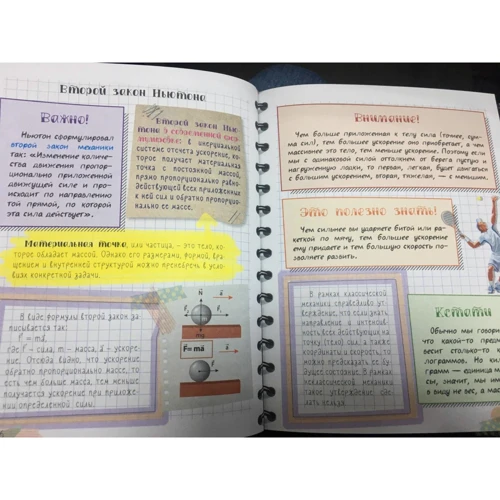 Второй закон Ньютона
Важно!
Ньютон сформулировал
второй закон механики
так: «Изменение количе-
ства движения пропор-
ционально приложенной
движущей силе и про-
исходит по направлению
той прямой, по которой
эта сила действует».
Второй закон Нью-
тона в современной фор-
мулировке: в инерциальной
системе отсчета ускорение, ко-
торое получает материальная
точка с постоянной массой,
прямо пропорционально равно-
действующей всех приложенных
к ней сил и обратно пропорцио-
нально ее массе.
Материальная точка, или частица, – это тело, ко-
торое обладает массой. Однако его размерами, формой, вра-
щением и внутренней структурой можно пренебречь в усло-
виях конкретной задачи.
В виде формулы второй закон за-
писывается так:
F = ma,
где F – сила, m – масса, a – ускоре-
ние. Отсюда видно, что ускорение
обратно пропорционально массе, то
есть чем больше масса, тем меньше
получается ускорение при приложе-
нии определенной силы.
N
F
F = ma
Внимание!
Чем больше приложенная к телу сила (точнее, сум-
ма сил), тем большее ускорение оно приобретает, а чем
массивнее это тело, тем меньше ускорение. Поэтому если
мы с одинаковой силой оттолкнем от берега пустую и
нагруженную лодки, то первая, легкая, будет двигаться
с большим ускорением, вторая, тяжелая, — с меньшим.
Это полезно знать!
Чем сильнее вы ударяете битой или ра-
кеткой по мячу, тем большее ускорение
ему придаете и тем большую скорость по-
зволяете развить.
В рамках классической
механики справедливо ут-
верждение, что если знать
направление и интенсив-
ность всех действующих на
точку (тело) сил, а также
координаты и скорость, то
можно предсказать ее бу-
дущее состояние. В рамках
неклассической механики
такое утверждение сде-
лать нельзя.
Кстати
Обычно мы говори
что какой-то предм
весит столько-то к
лограммов. Но кил
грамм — единица м
сы, значит, мы им
в виду не вес, а мас